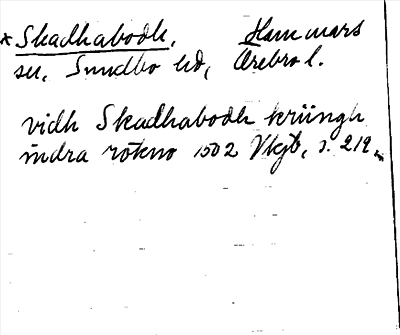 *Skadhabodh, Hammars
sn, Sundbo hd, Örebro l.
vidh Skadhabodh kriingh
indra rökno 1502 Vkjb, s. 219.